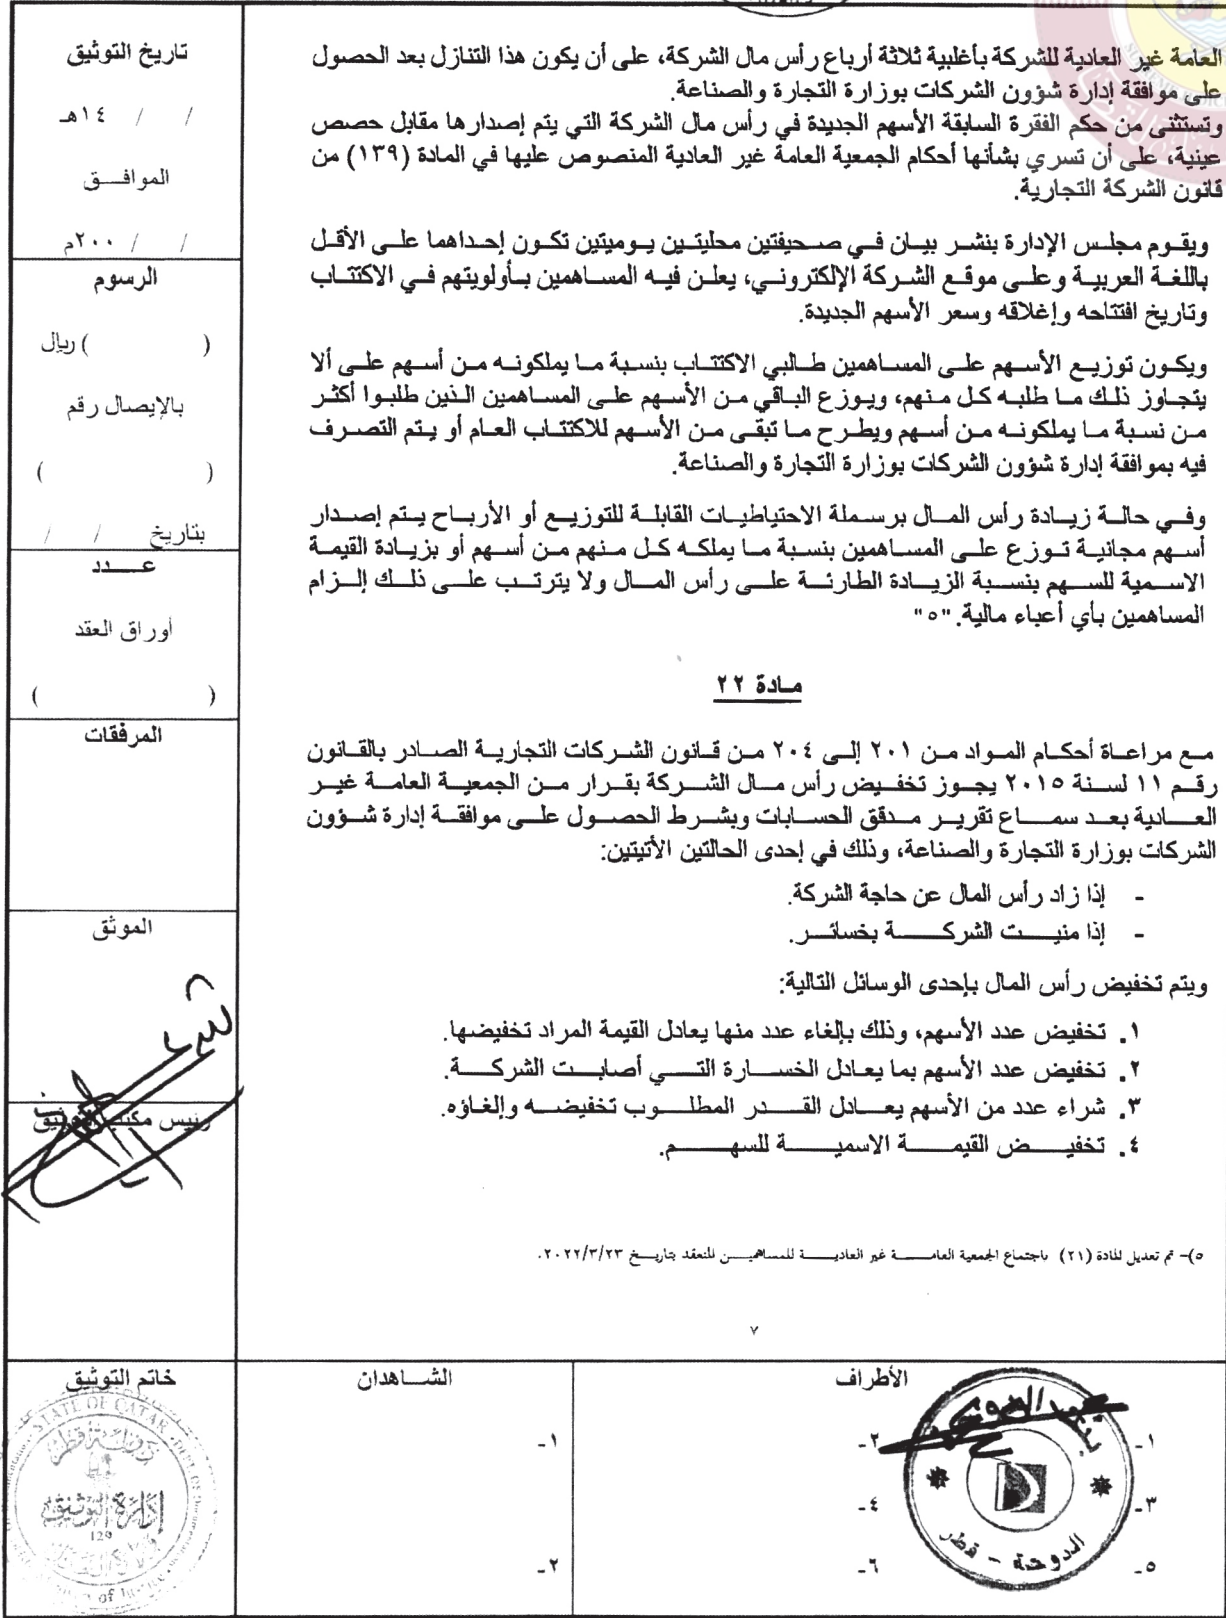 العامة غير العادية للشركة بأغلبية ثلاثة أرباع رأس مال الشركة، على أن يكون هذا التنازل بعد الحصول
على موافقة إدارة شؤون الشركات بوزارة التجارة والصناعة.
وتستثنى من حكم الفقرة السابقة الأسهم الجديدة في رأس مال الشركة التي يتم إصدارها مقابل حصص
عينية، على أن تسري بشأنها أحكام الجمعية العامة غير العادية المنصوص عليها في المادة (١٣٩) من
قانون الشركة التجارية.
ويقوم مجلس الإدارة بنشر بيان في صحيفتين محليتين يوميتين تكون إحداهما على الأقل
باللغة العربية وعلى موقع الشركة الإلكتروني، يعلن فيه المساهمين بأولويتهم في الاكتتاب
وتاريخ افتتاحه وإغلاقه وسعر الأسهم الجديدة.
ويكون توزيع الأسهم على المساهمين طالبي الاكتتاب بنسبة ما يملكونه من أسهم على ألا
يتجاوز ذلك ما طلبه كل منهم، ويوزع الباقي من الأسهم على المساهمين الذين طلبوا أكثر
من نسبة ما يملكونه من أسهم ويطرح ما تبقى من الأسهم للاكتتاب العام أو يتم التصرف
فيه بموافقة إدارة شؤون الشركات بوزارة التجارة والصناعة.
وفي حالة زيادة رأس المال برسملة الاحتياطيات القابلة للتوزيع أو الأرباح يتم إصدار
أسهم مجانية توزع على المساهمين بنسبة ما يملكه كل منهم من أسهم أو بزيادة القيمة
الاسمية للسهم بنسبة الزيادة الطارئة على رأس المال ولا يترتب على ذلك إلزام
المساهمين بأي أعباء مالية. "٥"
مادة ٢٢
مع مراعاة أحكام المواد من ٢٠١ إلى ٢٠٤ من قانون الشركات التجارية الصادر بالقانون
رقم ١١ لسنة ٢٠١٥ يجوز تخفيض رأس مال الشركة بقرار من الجمعية العامة غير
العادية بعد سماع تقرير مدقق الحسابات وبشرط الحصول على موافقة إدارة شؤون
الشركات بوزارة التجارة والصناعة، وذلك في إحدى الحالتين الأتيتين:
- إذا زاد رأس المال عن حاجة الشركة.
- إذا منيت الشركة بخسائر.
ويتم تخفيض رأس المال بإحدى الوسائل التالية:
١. تخفيض عدد الأسهم، وذلك بإلغاء عدد منها يعادل القيمة المراد تخفيضها.
٢. تخفيض عدد الأسهم بما يعادل الخسارة التي أصابت الشركة.
٣. شراء عدد من الأسهم يعادل القدر المطلوب تخفيضه وإلغاؤه.
٤. تخفيض القيمة الاسمية للسهم.
٥)- تم تعديل المادة (٢١) باجتماع الجمعية العامة غير العادية للمساهمين المنعقد بتاريخ ٢٠٢٢/٣/٢٣.
٧
تاريخ التوثيق
/ / ١٤هـ
الموافق
/ / ٢٠٠م
الرسوم
( ) ريال
بالإيصال رقم
( )
بتاريخ / /
عدد
أوراق العقد
( )
المرفقات
الموثق
رئيس مكتب التوثيق
خاتم التوثيق
STATE OF QATAR
دولة قطر
إدارة التوثيق
129
الشاهدان
١-
٢-
الأطراف
١-
٢-
٣-
٤-
٥-
٦-
الدوحة - قطر